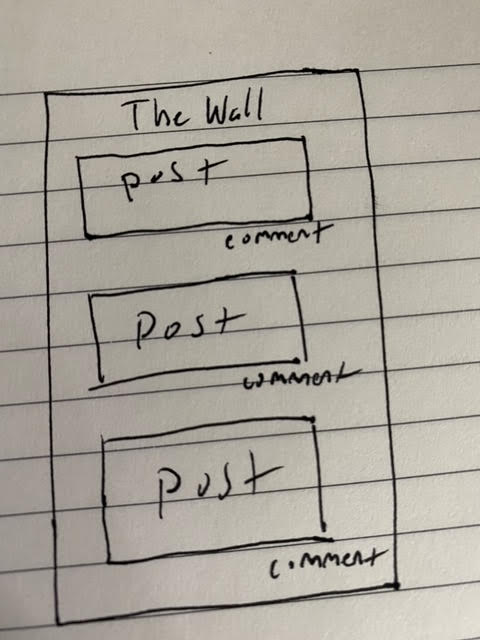 The Wall
post
comment
Post
comment
post
comment